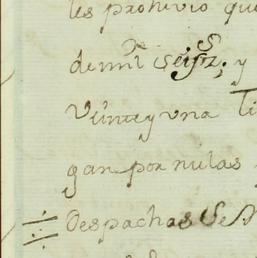 les prohivio que
de mil Seis, y
Veinte y una
gan por nulas
Despachas Se